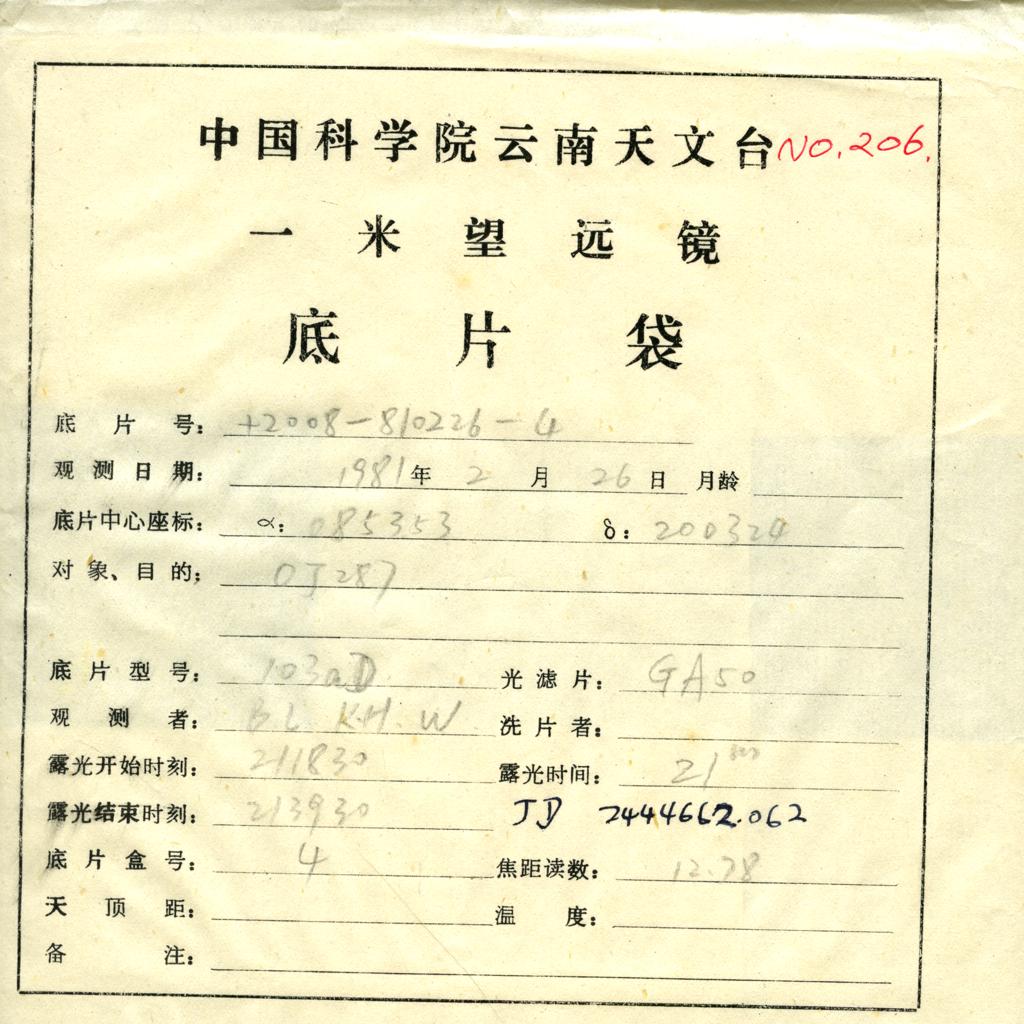 中国科学院云南天文台 NO.206.
一米望远镜
底片袋
底片号： +2008-810226-4
观测日期： 1981年 2 月 26 日 月龄
底片中心座标： α： 085353 δ： 200324
对象、目的： OJ287
底片型号： 103aD 光滤片： GA50
观测者： BL KH W 洗片者：
露光开始时刻： 211830 露光时间： 21
露光结束时刻： 213930 JD 2444662.062
底片盒号： 4 焦距读数： 12.78
天顶距： 温度：
备注：